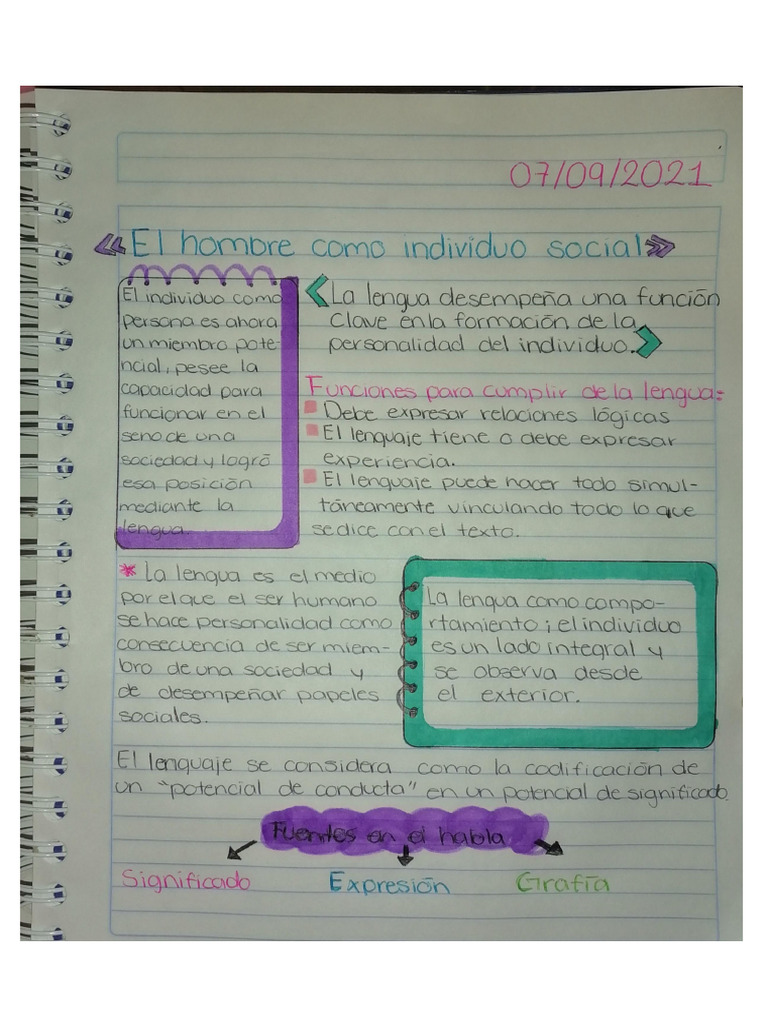 07/09/2021
El hombre como individuo social
El individuo como
persona es ahora
un miembro pote-
ncial, pesee la
capacidad para
funcionar en el
seno de una
sociedad y logró
esa posición
mediante la
lengua.
La lengua desempeña una función
clave en la formación de la
personalidad del individuo.
Funciones para cumplir de la lengua:
Debe expresar relaciones lógicas
El lenguaje tiene o debe expresar
experiencia.
El lenguaje puede hacer todo simul-
táneamente vinculando todo lo que
se dice con el texto.
* La lengua es el medio
por el que el ser humano
se hace personalidad como
consecuencia de ser miem-
bro de una sociedad y
de desempeñar papeles
sociales.
La lengua como compo-
rtamiento; el individuo
es un lado integral y
se observa desde
el exterior.
El lenguaje se considera como la codificación de
un "potencial de conducta" en un potencial de significado.
Fuentes en el habla
Significado Expresión Grafía